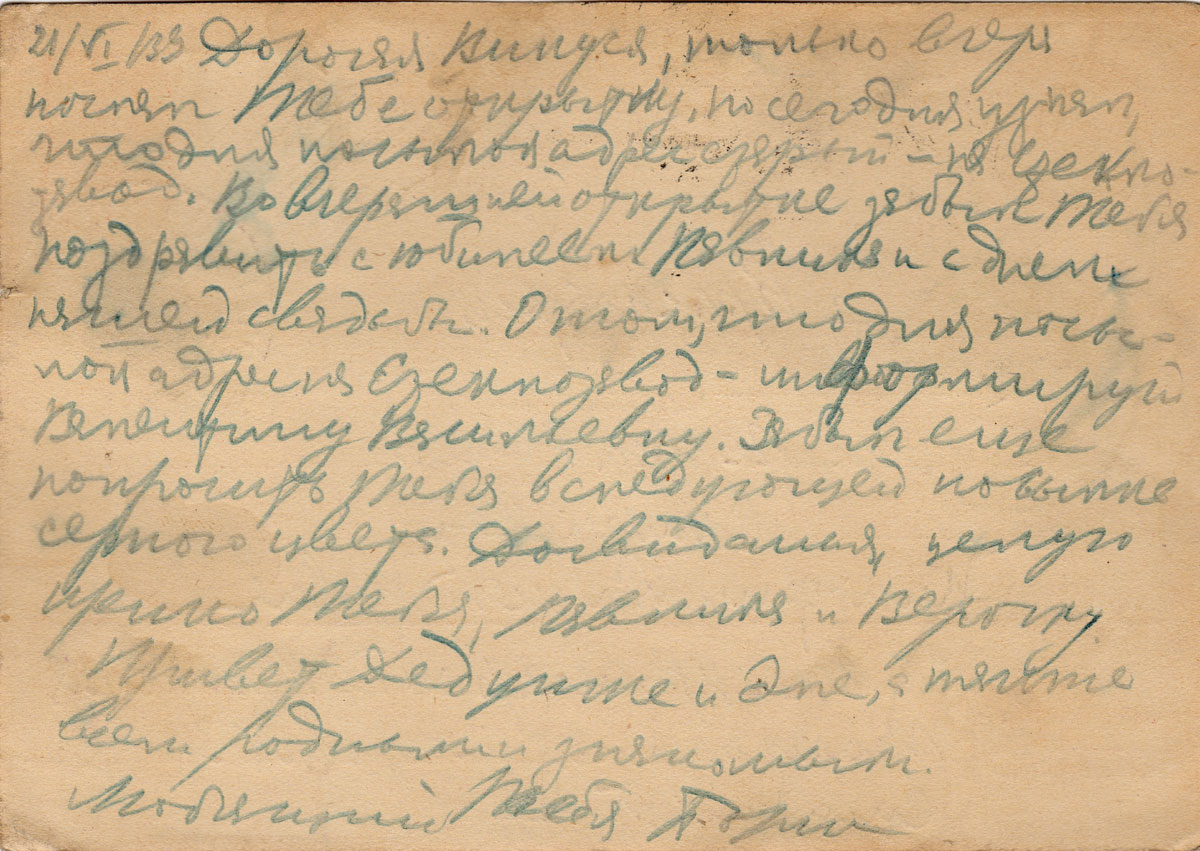 21/VI/39 Дорогая Кинуся, только вчера
послал Тебе открытку, но сегодня узнал,
что для посылок адрес старый – на Цекко-
завод. Во вчерашней открытке забыл Тебя
поздравить с юбилеем Павлика и с днем
нашей свадьбы. О том, что для посы-
лок адрес на завод – информируй
Валентину Васильевну. Забыл еще
попросить Тебя в следующей посылке
серного цвета. Досвидания, целую
крепко Тебя, Павлика и Верочку.
Привет Дедушке и Эле, а также
всем родным и знакомым.
Любящий Тебя Борис